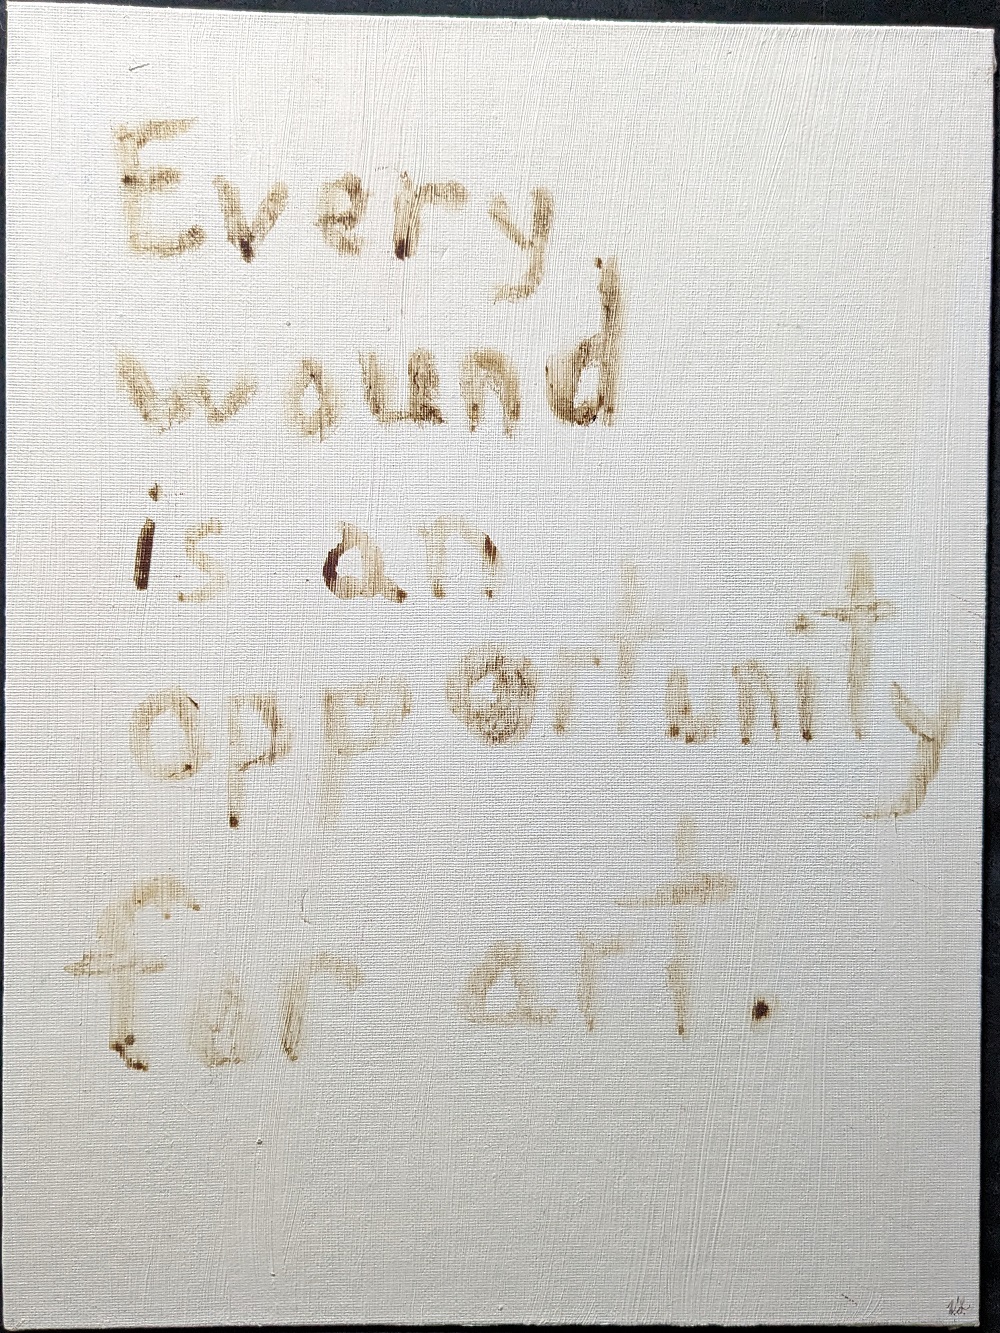 Every
wound
is an
opportunity
for art.